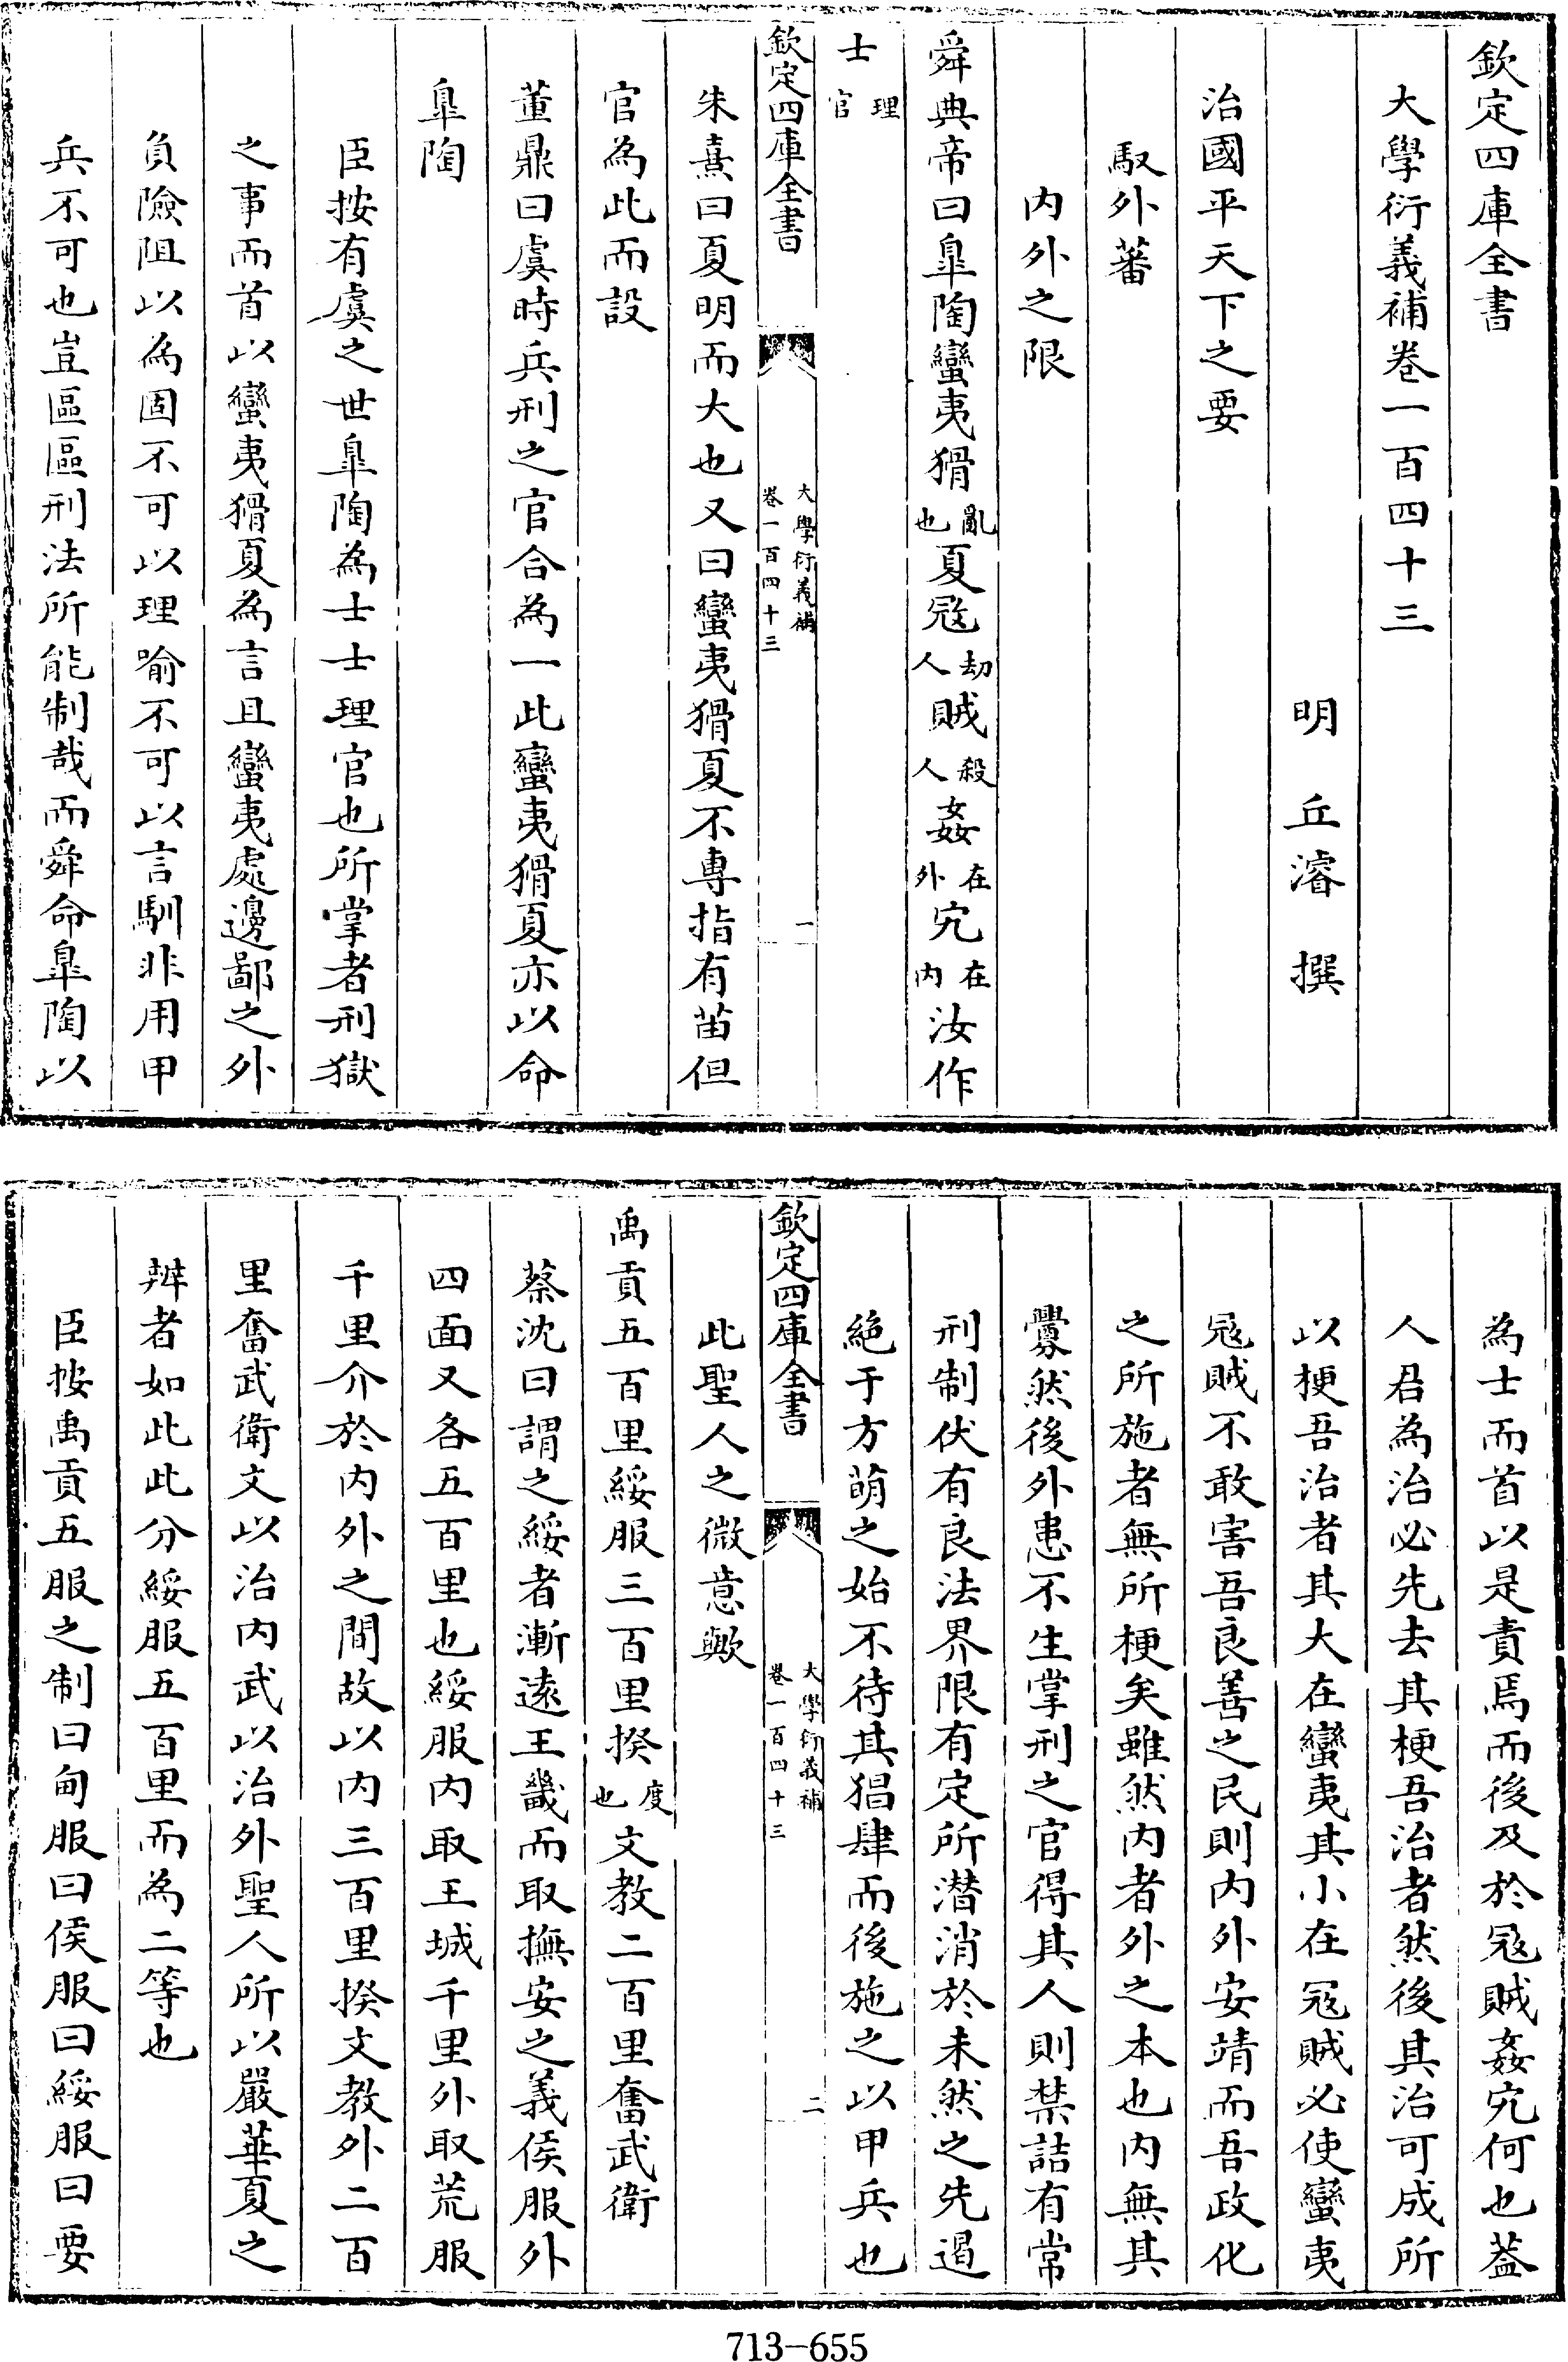 欽定四庫全書
大學衍義補卷一百四十三
明 丘濬 撰
治國平天下之要
馭外蕃
内外之限
舜典帝曰臯陶蠻夷猾亂也夏冦劫人賊殺人姦在外宄在内汝作
士理官
欽定四庫全書
大學衍義補
卷一百四十三
一
朱熹曰夏明而大也又曰蠻夷猾夏不專指有苗但
官為此而設
董鼎曰虞時兵刑之官合為一此蠻夷猾夏亦以命
臯陶
臣按有虞之世臯陶為士士理官也所掌者刑獄
之事而首以蠻夷猾夏為言且蠻夷處邊鄙之外
負險阻以為固不可以理喻不可以言馴非用甲
兵不可也豈區區刑法所能制哉而舜命臯陶以
為士而首以是責焉而後及於冦賊姦宄何也葢
人君為治必先去其梗吾治者然後其治可成所
以梗吾治者其大在蠻夷其小在冦賊必使蠻夷
冦賊不敢害吾良善之民則内外安靖而吾政化
之所施者無所梗矣雖然内者外之本也内無其
釁然後外患不生掌刑之官得其人則禁詰有常
刑制伏有良法界限有定所潜消於未然之先遏
絶于方萌之始不待其猖肆而後施之以甲兵也
欽定四庫全書
大學衍義補
卷一百四十三
二
此聖人之微意歟
禹貢五百里綏服三百里揆度也文教二百里奮武衛
蔡沈曰謂之綏者漸遠王畿而取撫安之義侯服外
四面又各五百里也綏服内取王城千里外取荒服
千里介於内外之間故以内三百里揆文教外二百
里奮武衛文以治内武以治外聖人所以嚴華夏之
辨者如此此分綏服五百里而為二等也
臣按禹貢五服之制曰甸服曰侯服曰綏服曰要
713-655